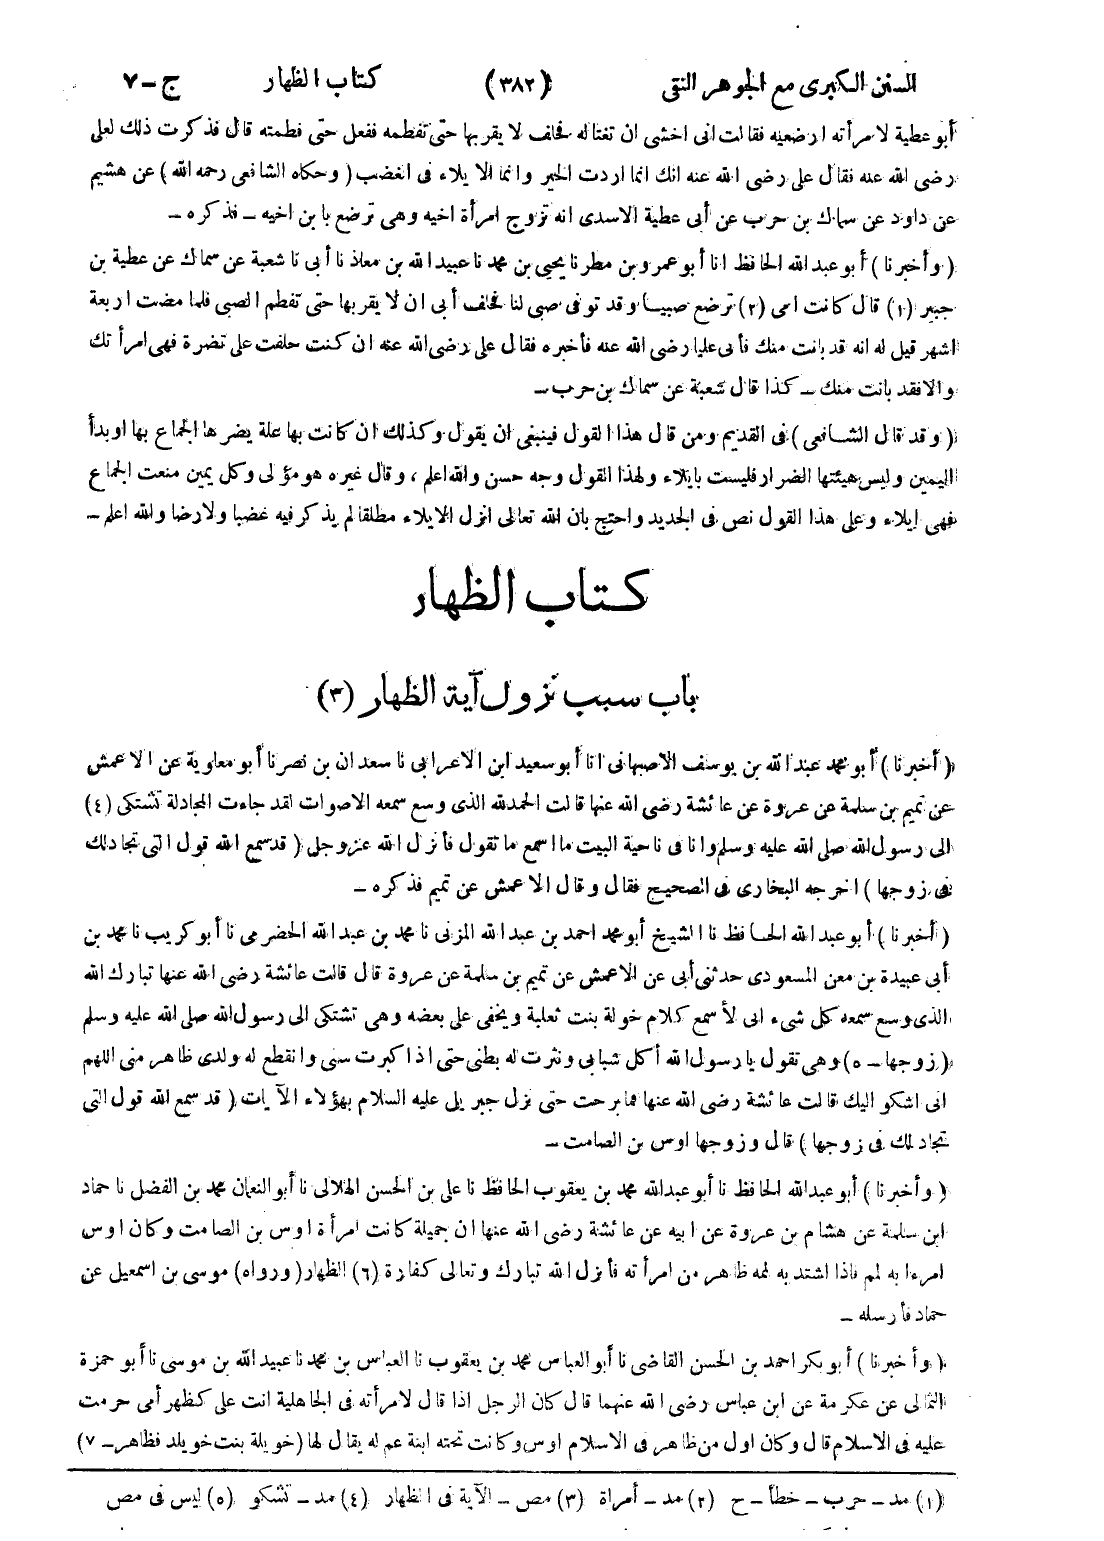 السنن الكبرى مع الجوهر النقى (٣٨٢) كتاب الظهار ج ـ ٧
أبو عطية لامرأته ارضعيه فقالت انى اخشى ان تغتاله فحلف لا يقربها حتى تفطمه ففعل حتى فطمته قال فذكرت ذلك لعلى
رضى الله عنه فقال على رضى الله عنه انك انما اردت الخير وانما الايلاء فى الغضب ( وحكاه الشافعى رحمه الله ) عن هشيم
عن داود عن سماك بن حرب عن أبى عطية الاسدى انه تزوج امرأة اخيه وهى ترضع بابن اخيه ـ فذكره ـ
( وأخبرنا ) أبو عبد الله الحافظ انا أبو عمرو بن مطر نا يحيى بن محمد نا عبيد الله بن معاذ نا أبى نا شعبة عن سماك عن عطية بن
جبير (١) قال كانت امى (٢) ترضع صبيا وقد توفى صبى لنا فحلف أبى ان لا يقربها حتى تفطم الصبى فلما مضت اربعة
اشهر قيل له انه قد بانت منك فأتى عليا رضى الله عنه فأخبره فقال على رضى الله عنه ان كنت حلفت على تضرة فهى امرأتك
والا فقد بانت منك ـ كذا قال شعبة عن سماك بن حرب ـ
( وقد قال الشافعى ) فى القديم ومن قال هذا القول فينبغى ان يقول وكذلك ان كانت بها علة يضرها الجماع بها او بدأ
اليمين وليس هيئتها الضرار فليست بايلاء ولهذا القول وجه حسن والله اعلم ، وقال غيره هو مؤلى وكل يمين منعت الجماع
فهى إيلاء وعلى هذا القول نص فى الجديد واحتج بان الله تعالى انزل الايلاء مطلقا لم يذكر فيه غضبا ولا رضا والله اعلم ـ
كتاب الظهار
باب سبب نزول آية الظهار (٣)
( أخبرنا ) أبو محمد عبد الله بن يوسف الاصبهانى انا أبو سعيد ابن الاعرابى نا سعدان بن نصر نا أبو معاوية عن الاعمش
عن تميم بن سلمة عن عروة عن عائشة رضى الله عنها قالت الحمد لله الذى وسع سمعه الاصوات لقد جاءت المجادلة تشتكى (٤)
الى رسول الله صلى الله عليه وسلم وانا فى ناحية البيت ما اسمع ما تقول فأنزل الله عزوجل ( قد سمع الله قول التى تجادلك
فى زوجها ) اخرجه البخارى فى الصحيح فقال وقال الاعمش عن تميم فذكره ـ
( أخبرنا ) أبو عبد الله الحافظ نا الشيخ أبو محمد احمد بن عبد الله المزنى نا محمد بن عبد الله الحضرمى نا أبو كريب نا محمد بن
أبى عبيدة بن معن المسعودى حدثنى أبى عن الاعمش عن تميم بن سلمة عن عروة قال قالت عائشة رضى الله عنها تبارك الله
الذى وسع سمعه كل شىء انى لأسمع كلام خولة بنت ثعلبة ويخفى على بعضه وهى تشتكى الى رسول الله صلى الله عليه وسلم
( زوجها ـ ٥) وهى تقول يا رسول الله أكل شبابى ونثرت له بطنى حتى اذا كبرت سنى وانقطع له ولدى ظاهر منى اللهم
انى اشكو اليك قالت عائشة رضى الله عنها فما برحت حتى نزل جبريل عليه السلام بهؤلاء الآيات ( قد سمع الله قول التى
تجادلك فى زوجها ) قال وزوجها اوس بن الصامت ـ
( وأخبرنا ) أبو عبد الله الحافظ نا أبو عبد الله محمد بن يعقوب الحافظ نا على بن الحسن الهلالى نا أبو النعمان محمد بن الفضل نا حماد
ابن سلمة عن هشام بن عروة عن ابيه عن عائشة رضى الله عنها ان جميلة كانت امرأة اوس بن الصامت وكان اوس
امرءا به لم فاذا اشتد به لمه ظاهر من امرأته فأنزل الله تبارك وتعالى كفارة (٦) الظهار ( ورواه ) موسى بن اسمعيل عن
حماد فأرسله ـ
( وأخبرنا ) أبو بكر احمد بن الحسن القاضى نا أبو العباس محمد بن يعقوب نا العباس بن محمد نا عبيد الله بن موسى نا أبو حمزة
الثمالى عن عكرمة عن ابن عباس رضى الله عنهما قال كان الرجل اذا قال لامرأته فى الجاهلية انت على كظهر أمى حرمت
عليه فى الاسلام قال وكان اول من ظاهر فى الاسلام اوس وكانت تحته ابنة عم له يقال لها ( خويلة بنت خويلد فظاهر ـ ٧)
(١) مد ـ حرب ـ خطأ ـ ح (٢) مد ـ أمراة (٣) مص ـ الآية فى الظهار (٤) مد ـ تشكو (٥) ليس فى مص